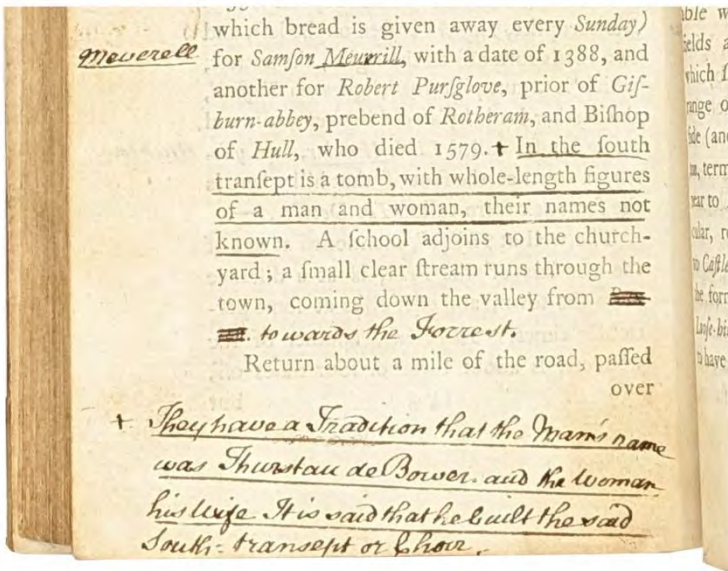 which bread is given away every Sunday)
Meverell
for Samſon Meurrill, with a date of 1388, and
another for Robert Purſglove, prior of Giſ-
burn-abbey, prebend of Rotheram, and Biſhop
of Hull, who died 1579. + In the ſouth
tranſept is a tomb, with whole-length figures
of a man and woman, their names not
known. A ſchool adjoins to the church-
yard; a ſmall clear ſtream runs through the
town, coming down the valley from
towards the Forrest.
Return about a mile of the road, paſſed
over
+ They have a Tradition that the Man's name
was Thurstan de Bower. and the Woman
his Wife It is said that he built the said
South-transept or Choir.